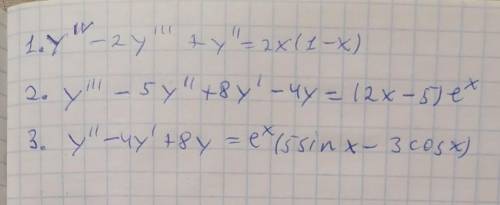 1. y^IV - 2y''' + y'' = 2x(1-x)
2. y''' - 5y'' + 8y' - 4y = (2x-5)e^x
3. y'' - 4y' + 8y = e^x(5sinx - 3cosx)